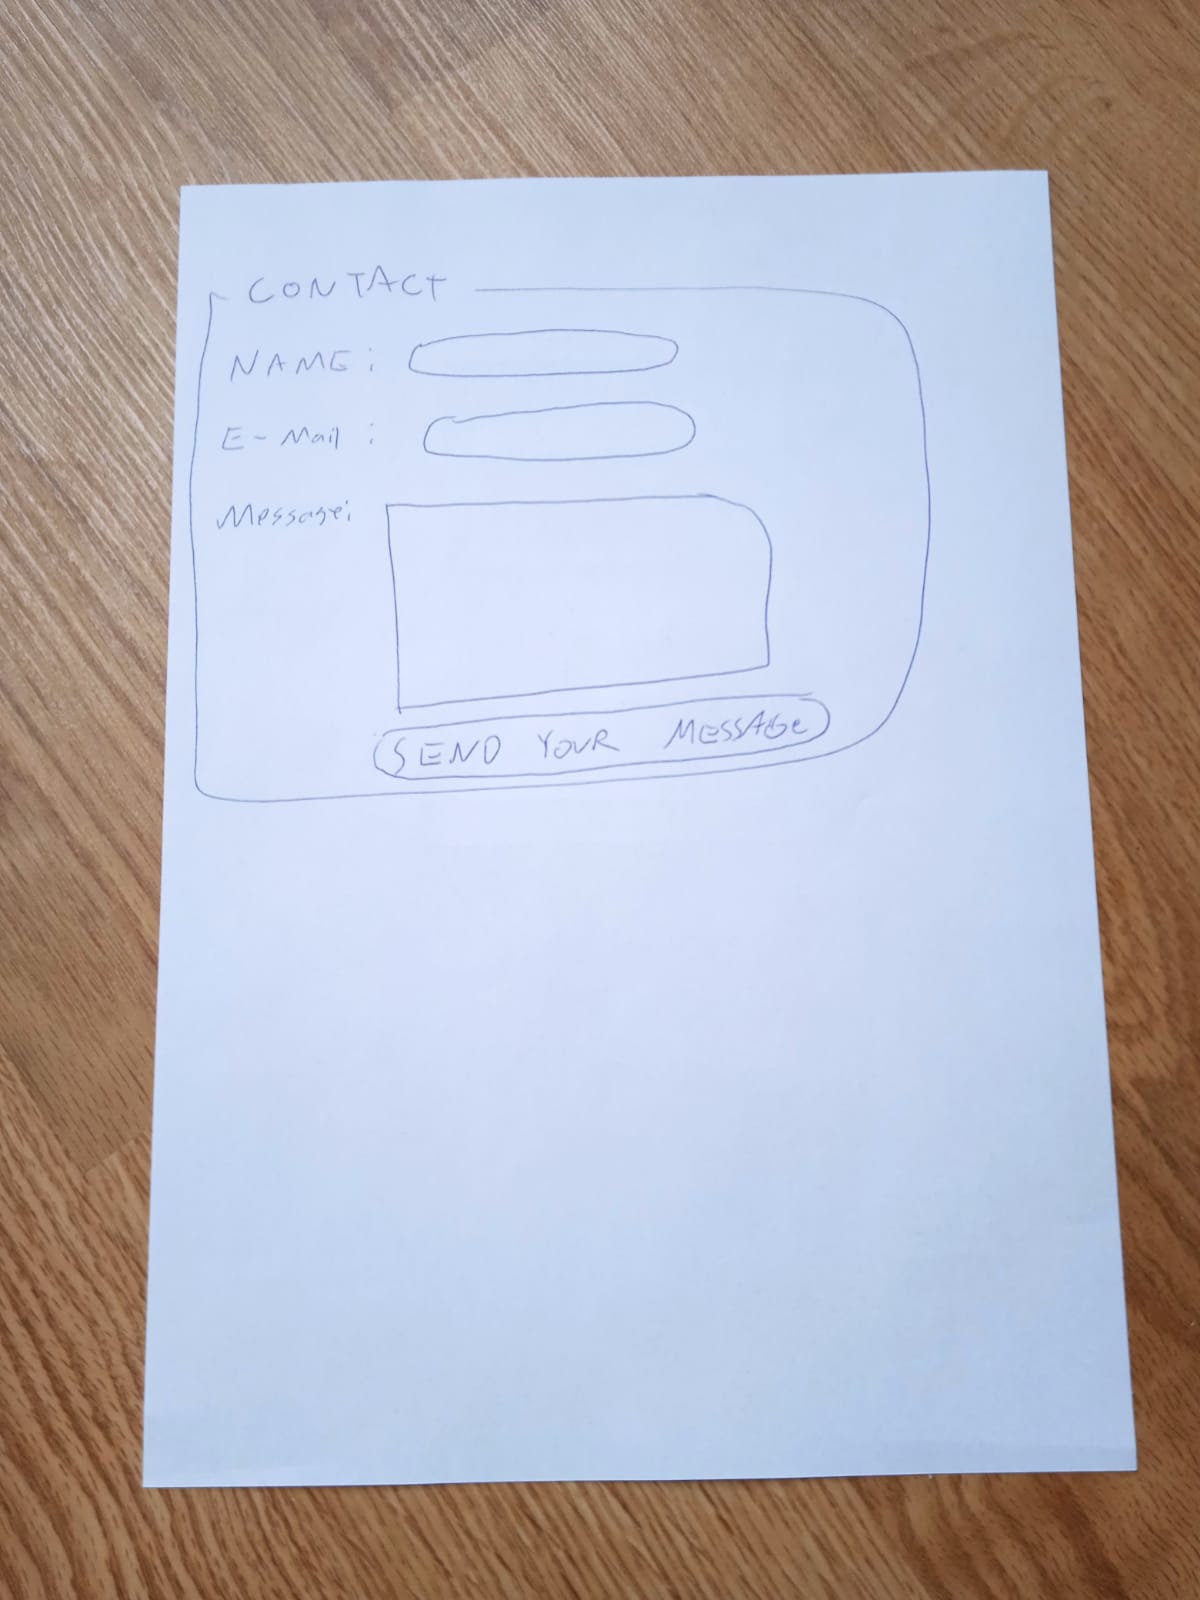 CONTACT
NAME:
E-Mail:
Message:
SEND YOUR MESSAGE